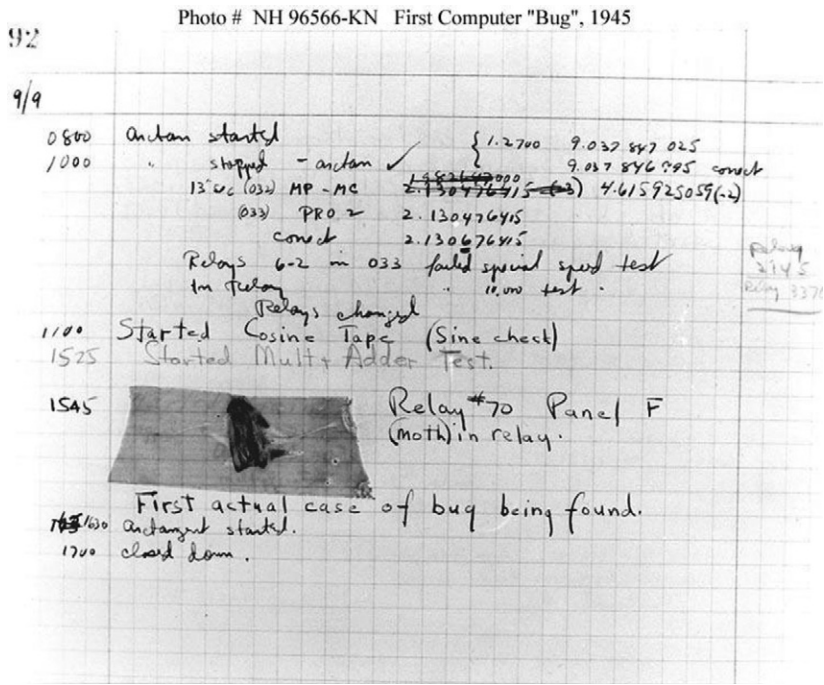 Photo # NH 96566-KN First Computer "Bug", 1945
92
9/9
0800 Antan started { 1.2700 9.037 847 025
1000 " stopped - antan ✓ 9.037 846 995 conect
13" uc (032) MP - MC 2.130476415 (-3) 4.615925059(-2)
(033) PRO 2 2.130476415
conect 2.130676415
Relays 6-2 in 033 failed special speed test
In Relay " 10,000 test .
Relays changed
Relay
3370
1100 Started Cosine Tape (Sine check)
1525 Started Mult + Adder Test.
1545 Relay #70 Panel F
(moth) in relay.
First actual case of bug being found.
1630 Antangent started.
1700 closed down .